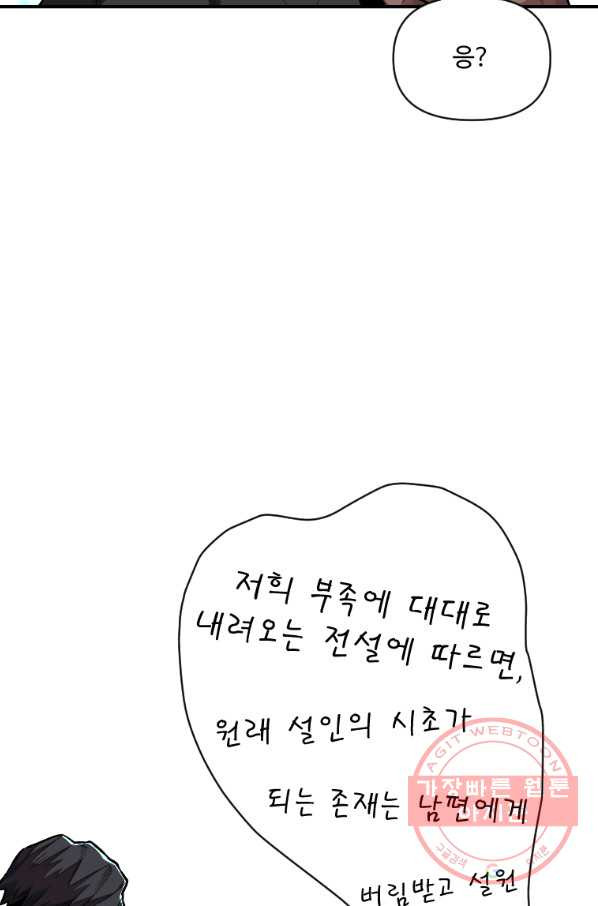 응?
저희 부족에 대대로
내려오는 전설에 따르면,
원래 설인의 시초가
되는 존재는 남편에게
버림받고 설원
AGIT WEBTOON
가장빠른 웹툰
아지트
구글검색 G 아지툰